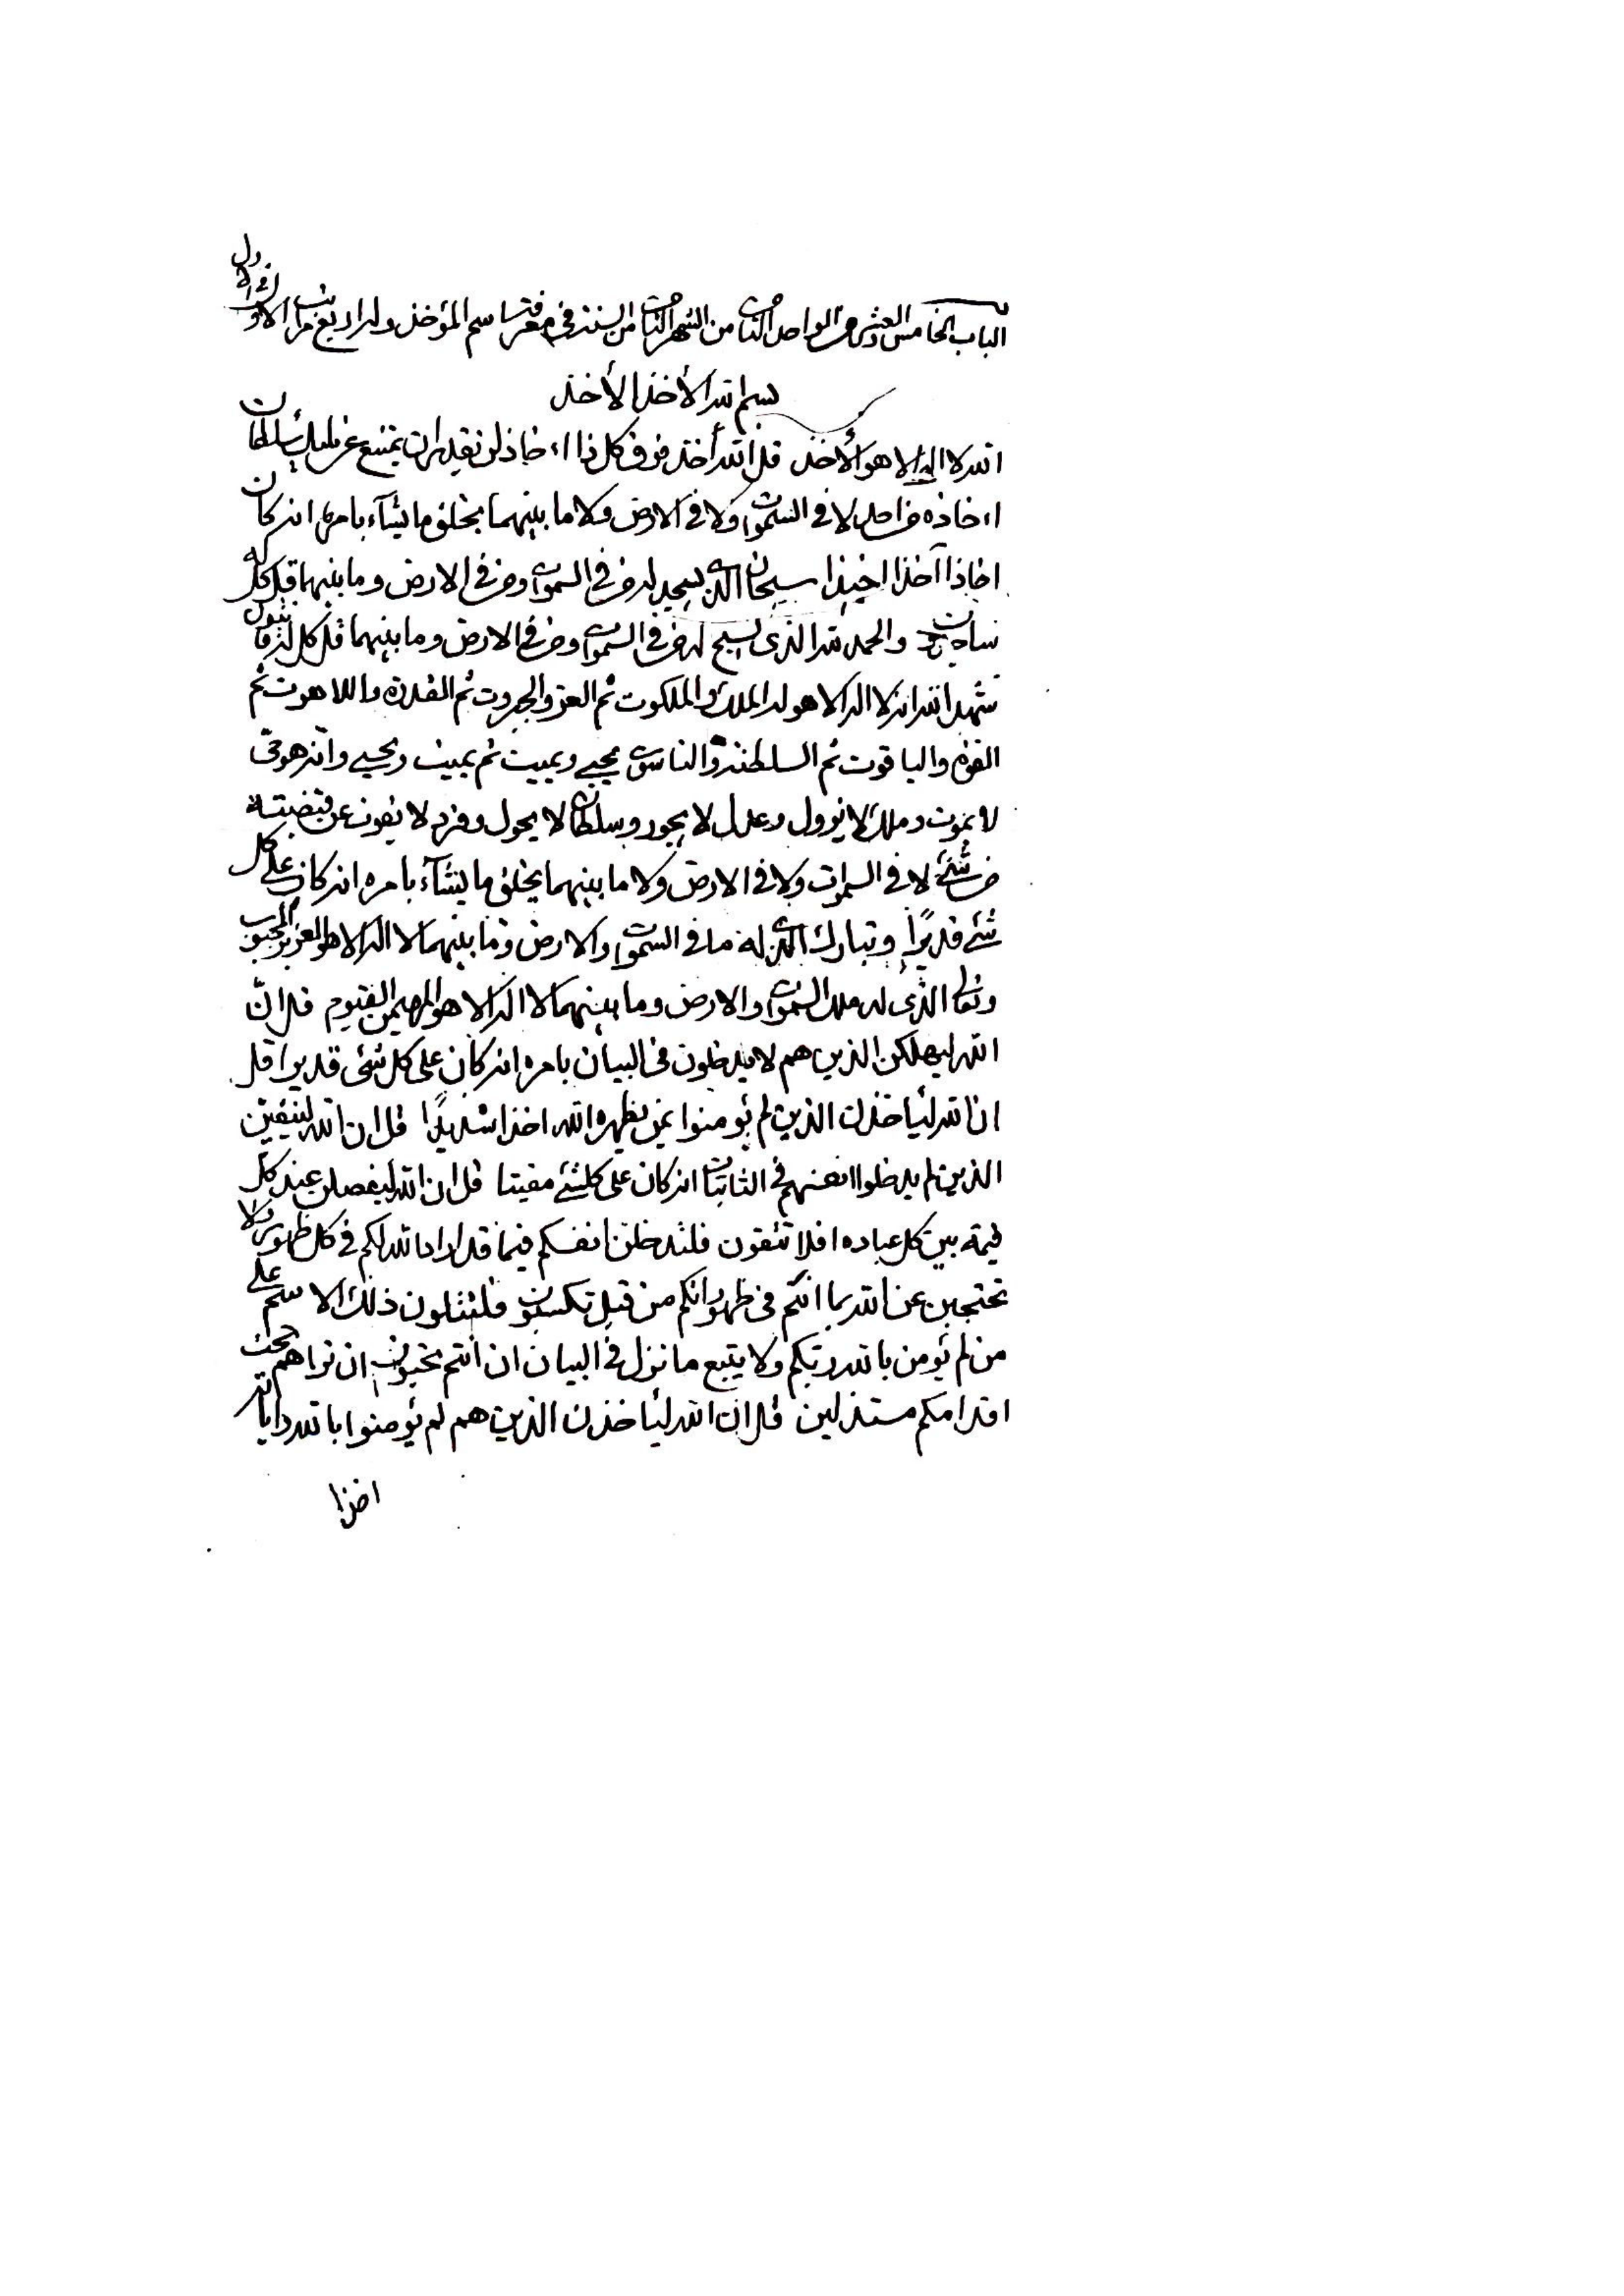 الباب الخامس والعشر من الواحد الثامن من الشهر الثامن من السنة في معرفة اسم المؤخذ وله اربع مراتب الاول في الاول
بسم الله الأخذ الأخذ
الله لا اله الا هو الأخذ قل الله أخذ فوق كل ذا اءخاذ لن يقدر ان يمتنع عن مليك سلطان
اءخاذه من احد لا في السموات ولا في الارض ولا ما بينهما يخلق ما يشآء بامره انه كان
اخاذا آخذا اخيذا سبحان الذي يسجد له من في السموات ومن في الارض وما بينهما قل كل له
ساجدون والحمد لله الذي يسبح له من في السموات ومن في الارض وما بينهما قل كل له قانتون
شهد الله انه لا اله الا هو له الملك والملكوت ثم العز والجبروت ثم القدرة واللاهوت ثم
القوة والياقوت ثم السلطنة والناسوت يحيي ويميت ثم يميت ويحيي وانه هو حي
لا يموت وملك لا يزول وعدل لا يجور وسلطان لا يحول وفرد لا يفوت عن قبضته
من شئ لا في السموات ولا في الارض ولا ما بينهما يخلق ما يشآء بامره انه كان على كل
شئ قديرًا وتبارك الذي له ما في السموات والارض وما بينهما لا اله الا هو العزيز المحبوب
وتعالى الذي له ملك السموات والارض وما بينهما لا اله الا هو المهيمن القيوم قل انّ
الله ليهلكن الذين هم لا يدخلون في البيان بامره انه كان على كل شئ قديرا قل
ان الله ليأخذن الذين لم يؤمنوا بمن يظهره الله اخذا شديدًا قل ان الله لينفين
الذين لم يدخلوا انفسهم في الثابتات انه كان على كلشئ مقيتا قل ان الله ليفصلن عند كل
قيمة بين كل عباده افلا تتقون فلتدخلن انفسكم فيما قد اراد الله لكم في كل ظهور ولا
تحتجبن عن الله بما انتم في ظهوراتكم من قبل تكسبون فلتتلون ذلك الاسم على
من لم يؤمن بالله ربكم ولا يتبع ما نزل في البيان ان انتم تحبون ان تراهم تحت
اقدامكم مستذلين قل ان الله ليأخذن الذين هم لم يؤمنوا بالله واياته
اخذا